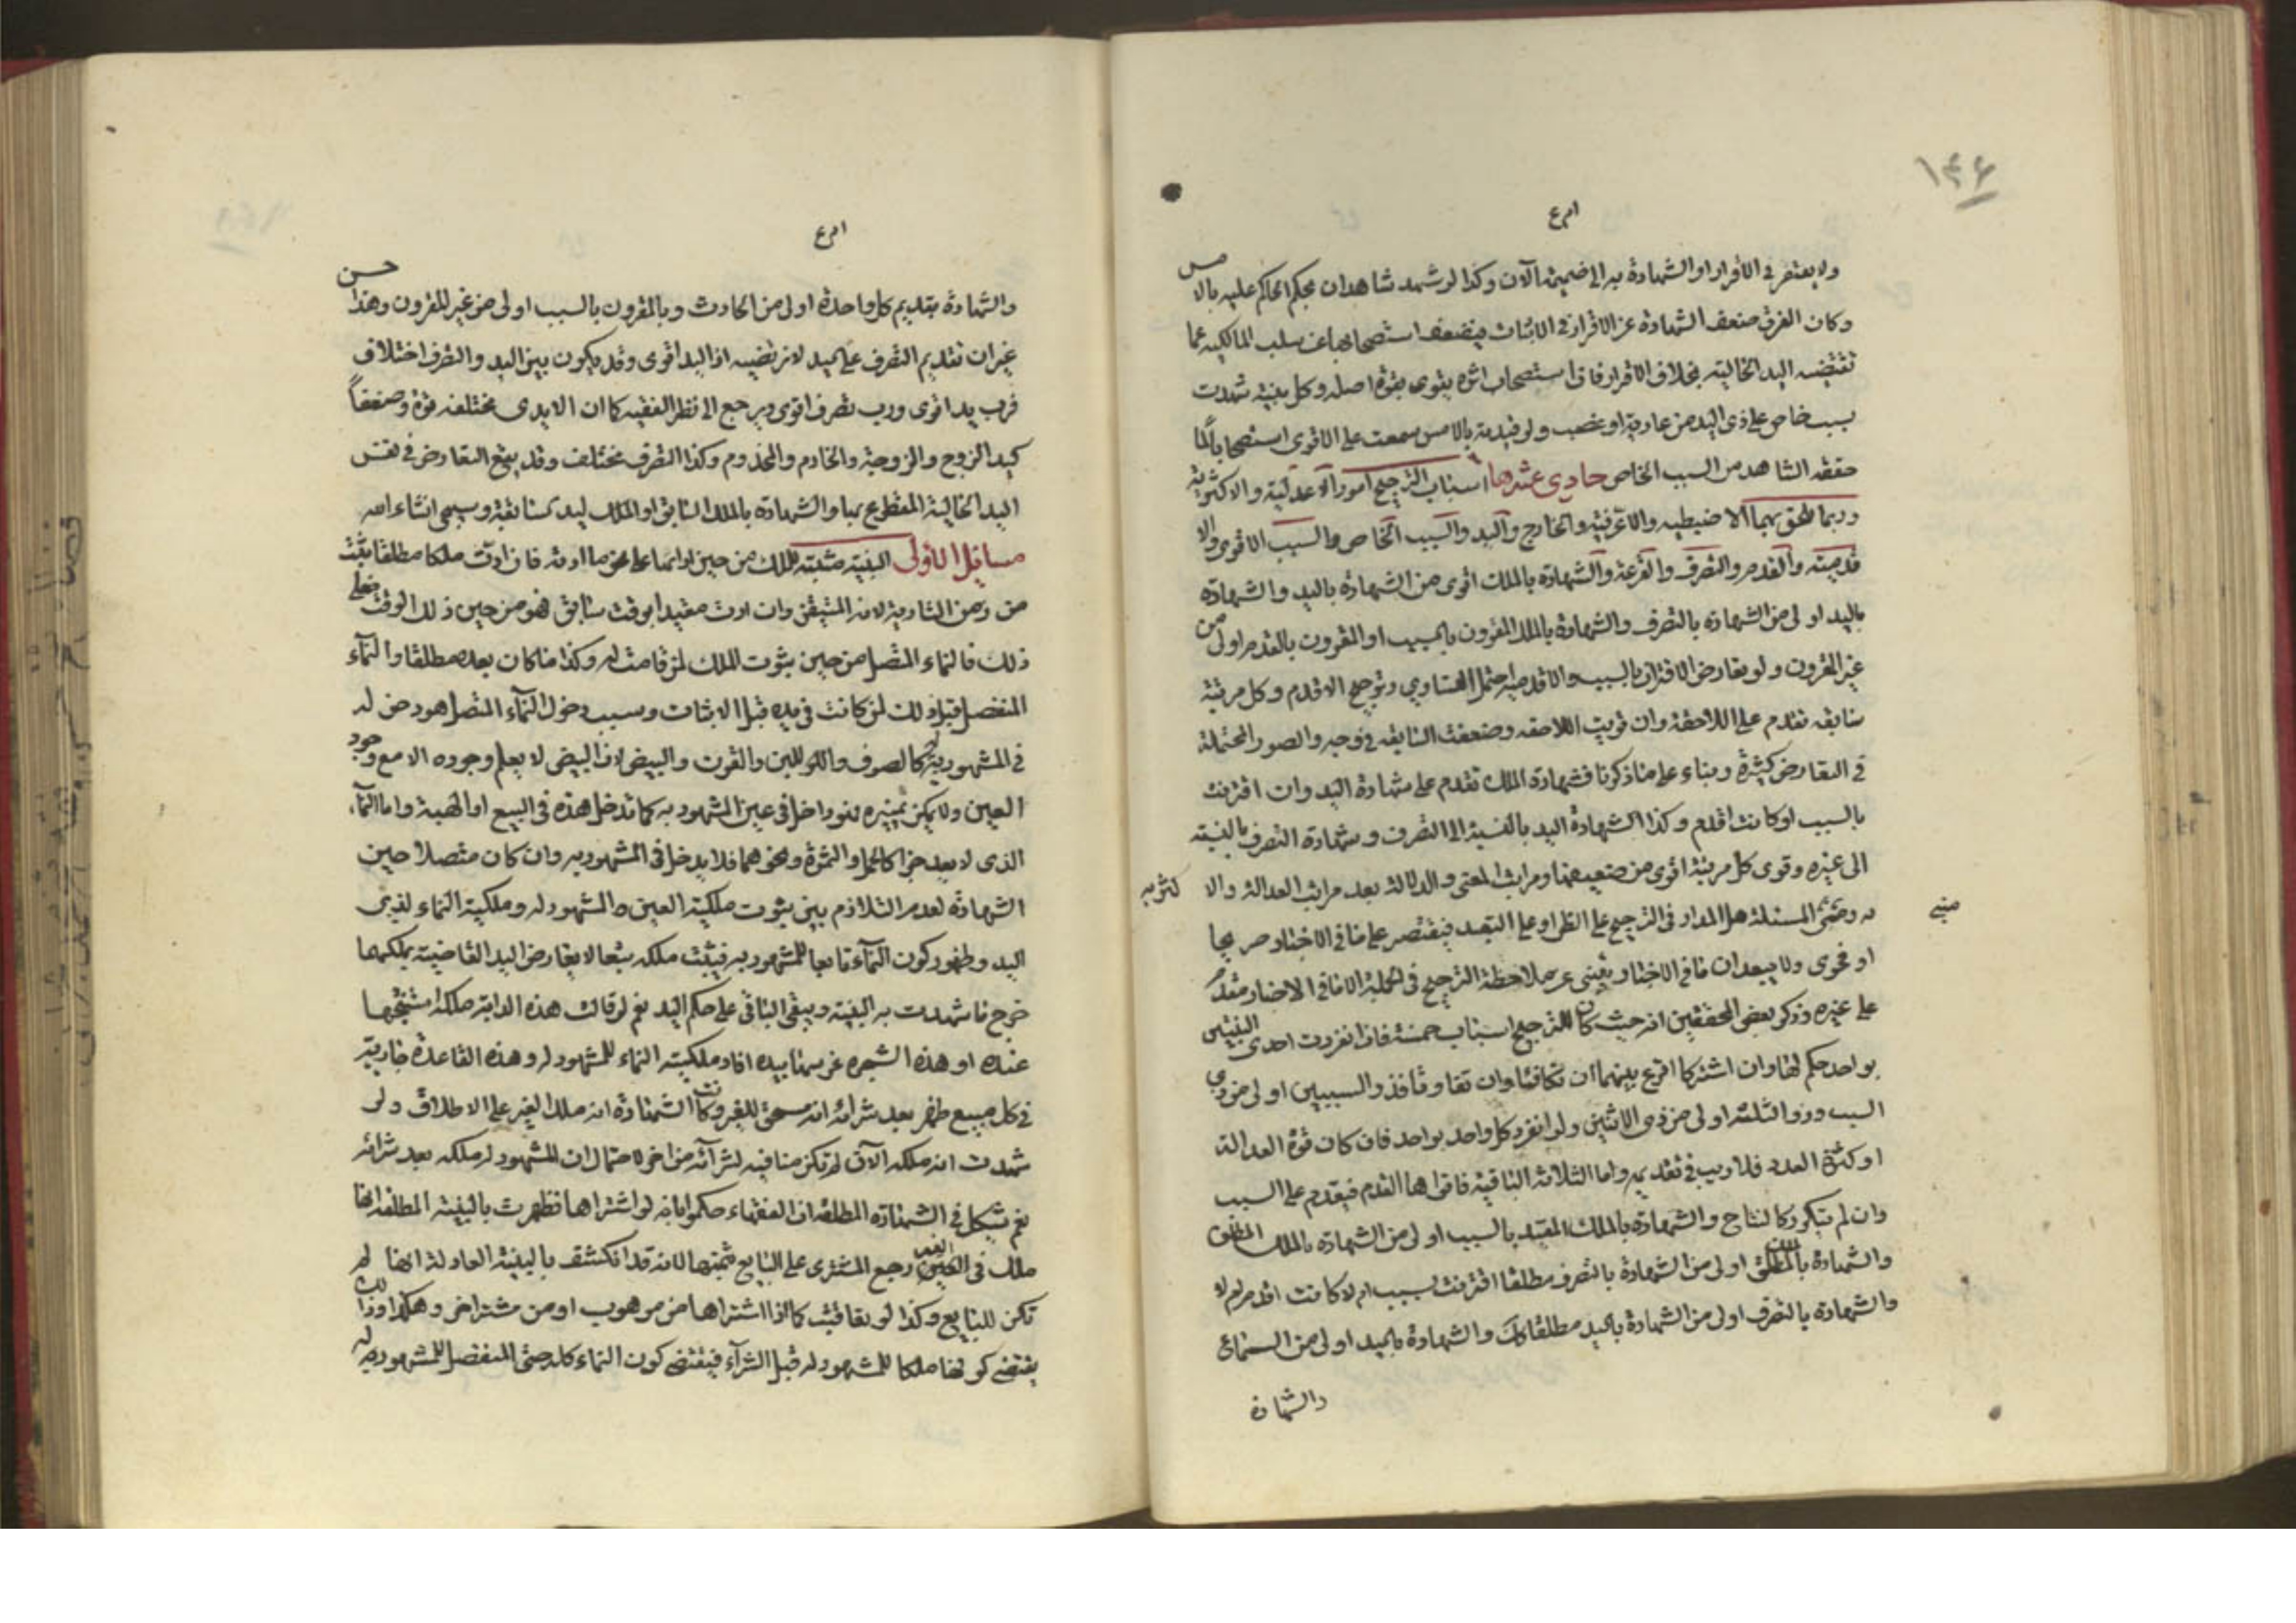 ١٤٦
ولا يفتقر في الاقرار او الشهادة به الى ضميمة الآن وكذا لو شهد شاهدان بحكم الحاكم عليه بالامس
وكان الفرق ضعف الشهادة عن الاقرار في الاثبات فيضعف استصحابها عن سلب المالكية عما
تقتضيه اليد الحالية بخلاف الاقرار فان استصحاب اثره يقوى بقوة اصله وكل بينة شهدت
بسبب خاص على ذي اليد من عارية او غصب ولو قيدته بالامس سمعت على الاقوى استصحابا لما
حققه الشاهد من السبب الخاص حادي عشرها اسباب الترجيح امور الاعدلية والاكثرية
وربما الحق بهما الاضبطيه والاعرفية والخارج واليد والسبب الخاص والسبب الاقوى والا
قدميته والقدم والتصرف والقرعة والشهادة بالملك اقوى من الشهادة باليد والشهادة
باليد اولى من الشهادة بالتصرف والشهادة بالملك المقرون بالسبب او المقرون بالقدم اولى من
غير المقرون ولو تعارض الاقتران بالسبب والاقدمية احتمل التساوي وترجيح الاقدم وكل مرتبة
سابقه تقدم على اللاحقة وان قويت اللاحقه وضعفت السابقه في وجه والصور المحتملة
في التعارض كثيرة وبناء على ما ذكرنا فشهادة الملك تقدم على شهادة اليد وان اقترنت
بالسبب او كانت اقدم وكذا الشهادة اليد بالنسبة الى التصرف وشهادة التصرف بالنسبة
الى غيره وقوى كل مرتبة اقوى من ضعيفها ومراتب المعنى والدلالة بعد مراتب العدالة والا كثريه
وهل المدار في الترجيح على الظن او على التعبد فيقتصر على ما في الاخبار صريحا
او فحوى ولا يبعد ان ما في الاخبار يغني عن ملاحظة الترجيح في الجملة الا ما في الاخبار مقدم
على غيره وذكر بعض المحققين انه حيث كان للترجيح اسباب خمسة فان انفردت احدى البينتين
بواحد حكم لها وان اشتركا اقرع بينهما ان تكافئا وان تفاوتا فذو السببين اولى من ذي
السبب وذو الثلثة اولى من ذي الاثنين ولو انفرد كل واحد بواحد فان كان قوة العدالة
او كثرة العدد فلا ريب في تقديمه واما الثلاثة الباقية فاقواها القدم فيقدم على السبب
وان لم يتكرر كالنتاج والشهادة بالملك المقيد بالسبب اولى من الشهادة بالملك المطلق
والشهادة بالملك المطلق اولى من الشهادة بالتصرف مطلقا اقترنت بسبب ام لا كانت اقدم ام لا
والشهادة بالتصرف اولى من الشهادة باليد مطلقا كك والشهادة باليد اولى من السماع
والشهادة
والشهادة بتقديم كل واحدة اولى من الحادث وبالمقرون بالسبب اولى من غير المقرون وهذا حسن
غير ان تقديم التصرف على اليد لا نرتضيه اذ اليد اقوى وقد يكون بين اليد والتصرف اختلاف
فرب يد اقوى ورب تصرف اقوى ويرجع الى نظر الفقيه كما ان الايدي مختلفة قوة وضعفاً
كيد الزوج والزوجة والخادم والمخدوم وكذا التصرف مختلف وقد يقع التعارض في نفس
اليد الحالية المقطوع بها والشهادة بالملك السابق او الملك ليد سابقة وسيجئ انشاء الله
مسائل الأولى البينة مثبتة للملك من حين ادائها على نحو ما ادته فان ادت ملكا مطلقا يثبت
من زمن التادية لانه المتيقن وان ادت مقيدا بوقت سابق فهو من حين ذلك الوقت فعلى
ذلك فالنماء المتصل من حين ثبوت الملك لمن قامت له وكذا ما كان بعده مطلقا والنماء
المنفصل قبل ذلك لمن كانت في يده قبل الاثبات وسبب دخول النماء المتصل هو دخوله
في المشهود به كالصوف والوبر واللبن والقرت والبيض لان البيض لا يعلم وجوده الا مع وجود
العين ولا يمكن تميزه فهو داخل في عين المشهود به كما تدخل هذه في البيع او الهبة واما النماء
الذي لا يعد جزا كالحمل والثمرة ونحوهما فلا يدخل في المشهود به وان كان متصلا حين
الشهادة لعدم التلازم بين ثبوت ملكية العين والمشهود له وملكية النماء لذي
اليد وظهور كون النماء تابعا للمشهود به فيثبت ملكه تبعا لا يعارض اليد القاضية بملكها
خرج ما شهدت به البينة ويبقى الباقي على حكم اليد نعم لو قالت هذه الدابة ملكه استنتجها
عنده او هذه الشجره غرسها بيده افاد ملكية النماء للمشهود له وهذه القاعدة جارية
في كل مبيع ظهر بعد شرائه انه مستحق للغير وكانت الشهادة انه ملك الغير على الاطلاق ولو
شهدت انه ملكه الآن لم تكن منافيه لشرائه من اخر لاحتمال ان المشهود له ملكه بعد شرائه
نعم يشكل في الشهادة المطلقة ان الفقهاء حكموا بانه لو اشتراها فظهرت بالبينة المطلقة انها
ملك الغير رجع المشتري على البايع بثمنها لانه قد انكشف بالبينة العادلة انها لم
تكن للبايع وكذا لو تعاقبت كما اذا اشتراها من موهوب او من مشتر اخر وهكذا وذلك
يقتضي كونها ملكا للمشهود له قبل الشرآء فيقتضي كون النماء كله حتى المنفصل للمشهود له